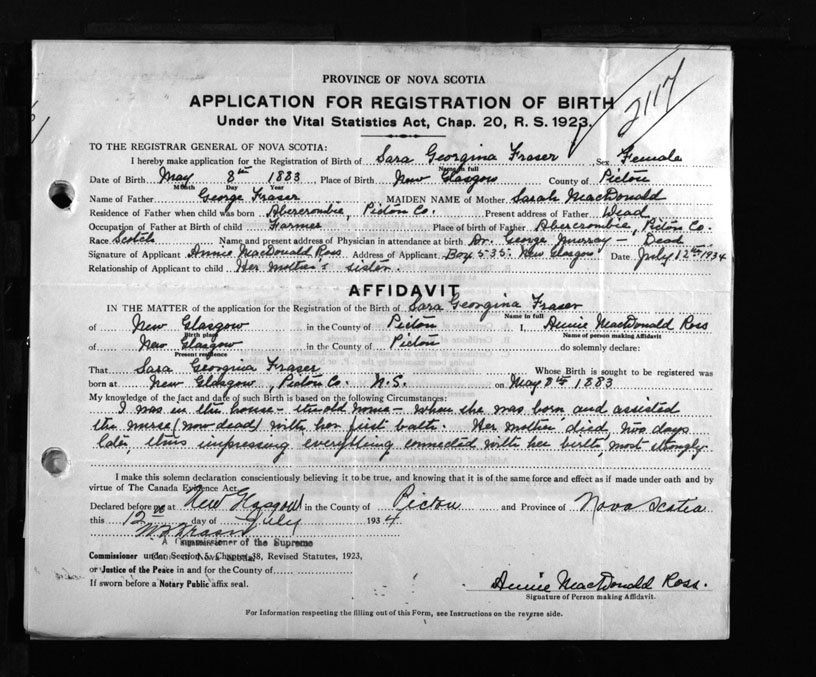 2117
PROVINCE OF NOVA SCOTIA
APPLICATION FOR REGISTRATION OF BIRTH
Under the Vital Statistics Act, Chap. 20, R. S. 1923.
TO THE REGISTRAR GENERAL OF NOVA SCOTIA:
I hereby make application for the Registration of Birth of Sara Georgina Fraser, Sex Female
Name in full
Date of Birth May 8th 1883 Place of Birth New Glasgow County of Pictou
Month Day Year
Name of Father George Fraser MAIDEN NAME of Mother Sarah MacDonald
Residence of Father when child was born Abercrombie, Pictou Co. Present address of Father Dead
Occupation of Father at Birth of child Farmer Place of birth of Father Abercrombie, Pictou Co.
Race Scotch Name and present address of Physician in attendance at birth Dr. George Murray - Dead
Signature of Applicant Annie MacDonald Ross Address of Applicant Box 535. New Glasgow Date July 12th 1934
Relationship of Applicant to child Her mother's sister.
AFFIDAVIT
IN THE MATTER of the application for the Registration of the Birth of Sara Georgina Fraser
Name in full
of New Glasgow in the County of Pictou I, Annie MacDonald Ross
Birth place Name of person making Affidavit
of New Glasgow in the County of Pictou do solemnly declare:
Present residence
That Sara Georgina Fraser Whose Birth is sought to be registered was
born at New Glasgow, Pictou Co. N.S. on May 8th 1883
My knowledge of the fact and date of such Birth is based on the following Circumstances:
I was in the house - the old home - where she was born and assisted
the nurse (now dead) with her first bath. Her mother died, two days
later, thus impressing everything connected with her birth, most strongly
I make this solemn declaration conscientiously believing it to be true, and knowing that it is of the same force and effect as if made under oath and by
virtue of The Canada Evidence Act.
Declared before me at New Glasgow in the County of Pictou and Province of Nova Scotia
this 12th day of July 1934
A Commissioner of the Supreme
Commissioner under Section 5, Chapter 38, Revised Statutes, 1923,
or Justice of the Peace in and for the County of
If sworn before a Notary Public affix seal.
Annie MacDonald Ross.
Signature of Person making Affidavit.
For Information respecting the filling out of this Form, see Instructions on the reverse side.